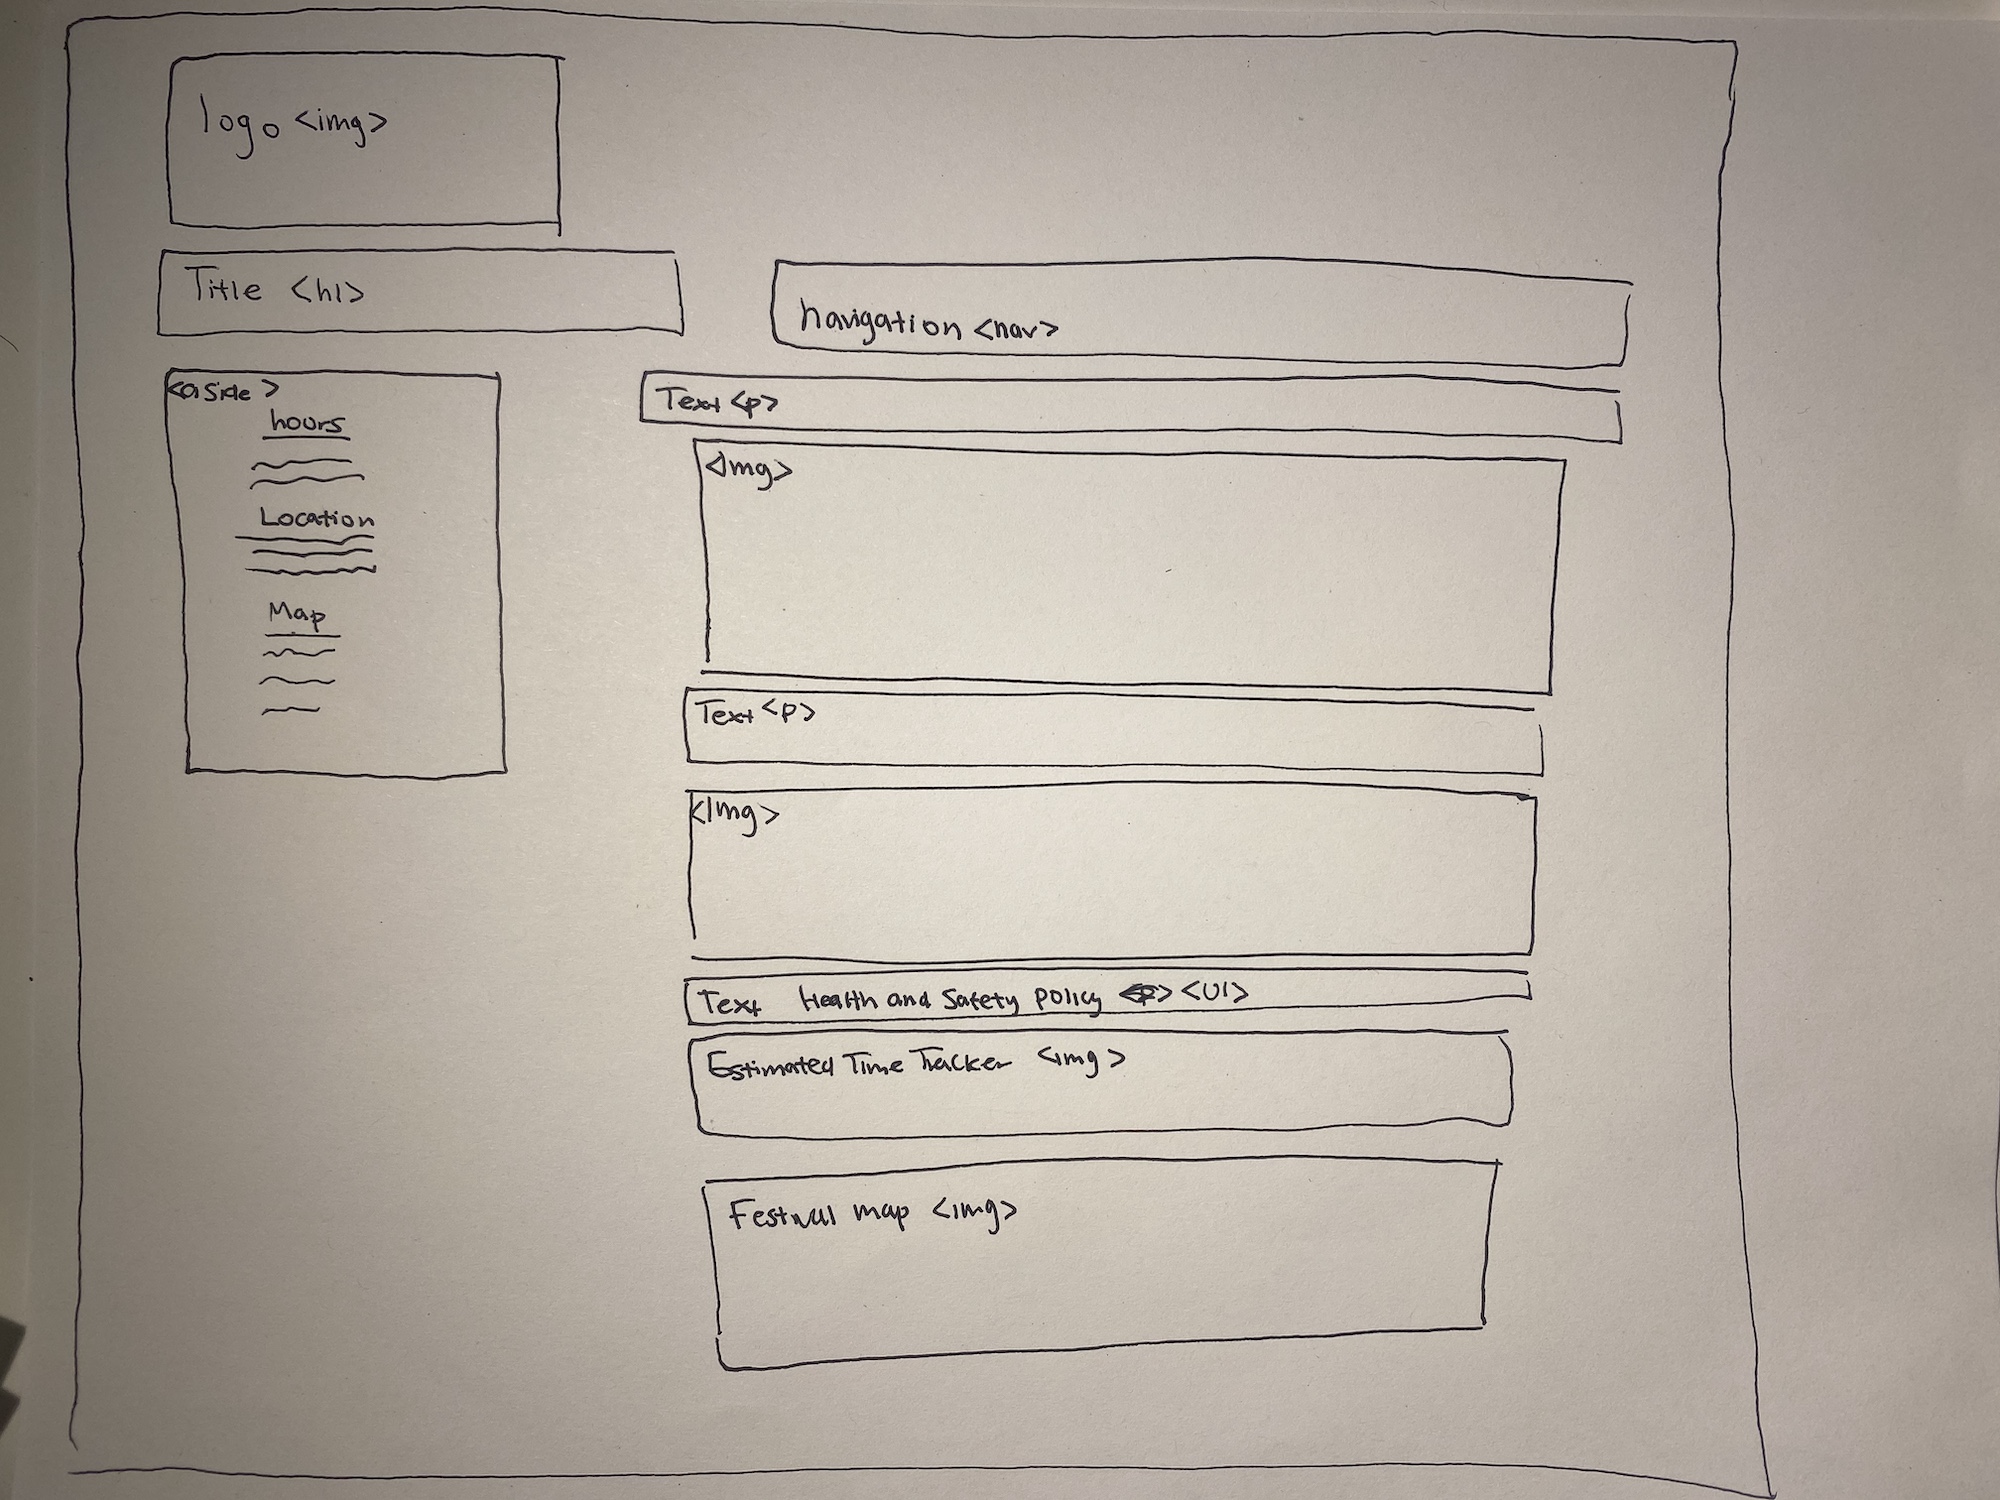 logo <img>
Title <h1>
navigation <nav>
<aside>
hours
Location
Map
Text <p>
<Img>
Text <p>
<Img>
Text Health and Safety Policy <p> <Ul>
Estimated Time Tracker <img>
Festival map <img>